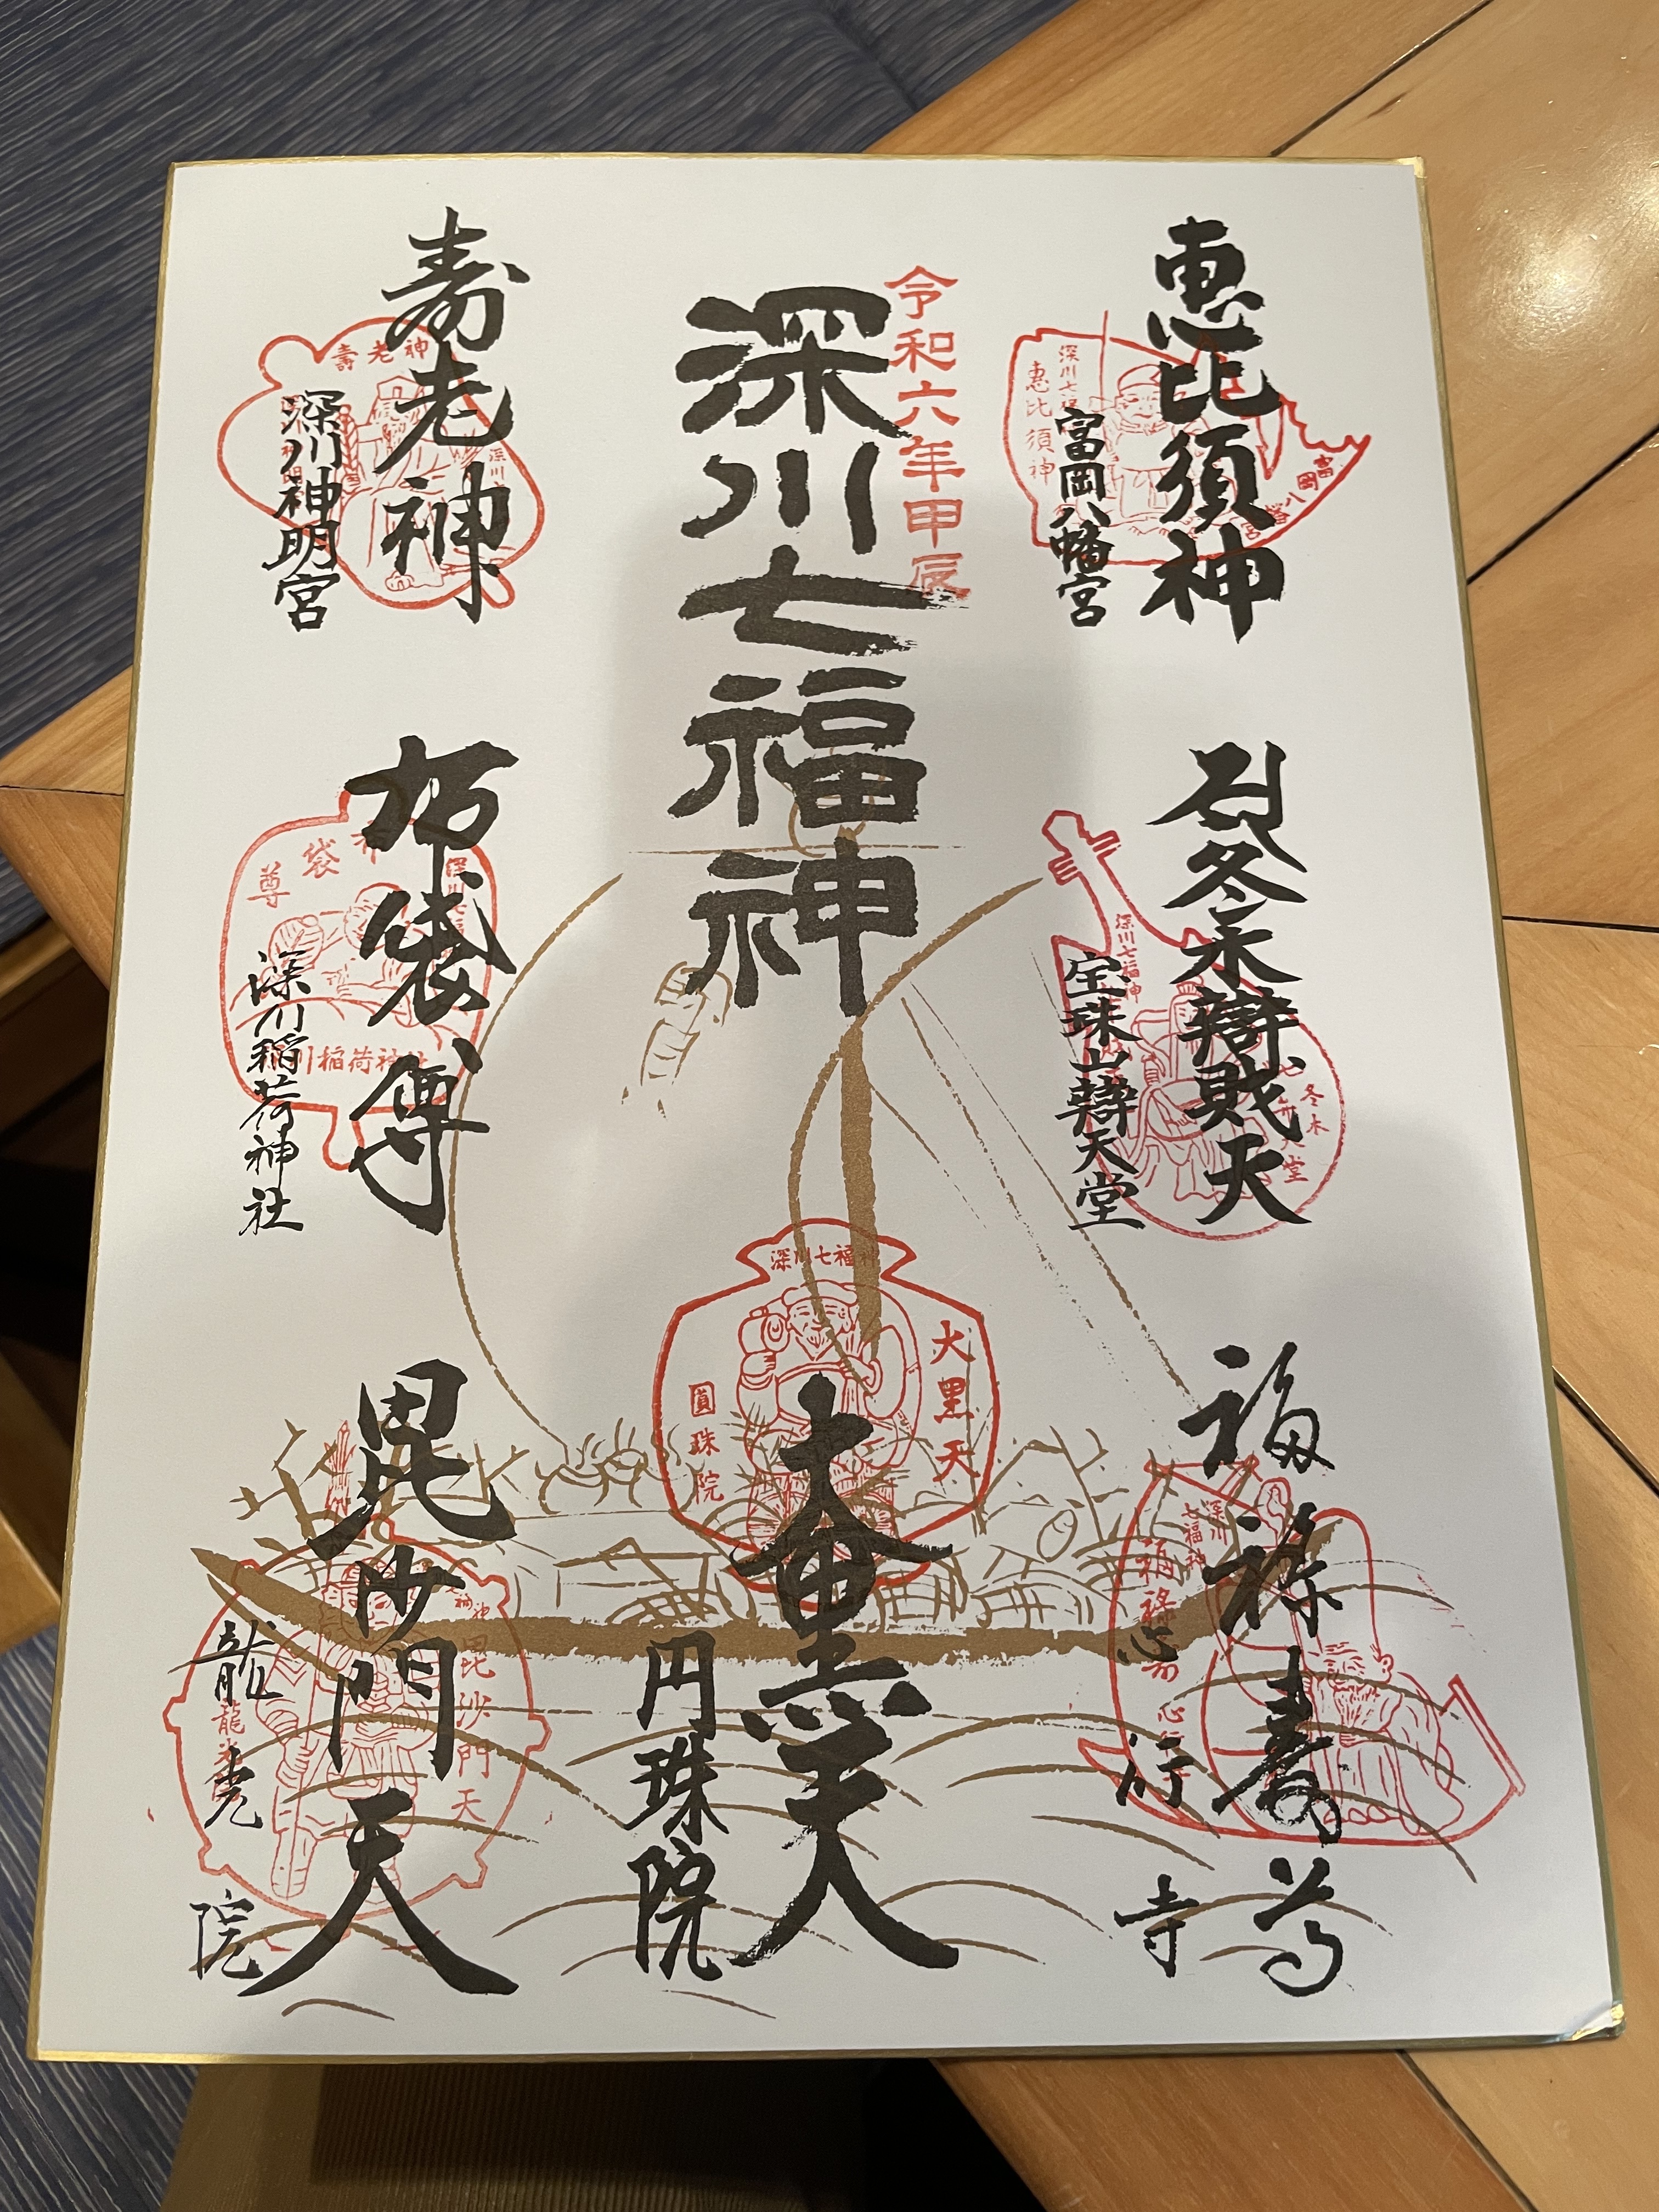 恵比須神
富岡八幡宮
深川七福神
恵比須神
富岡八幡宮
冬木辯財天
宝珠山辯天堂
深川七福神
冬木
福禄寿
心行寺
深川
七福神
福禄寿
心行
令和六年甲辰
深川七福神
大黒天
円珠院
深川七福神
大黒天
圓珠院
寿老神
深川神明宮
壽老神
深川
布袋尊
深川稲荷神社
布袋尊
深川稲荷神社
毘沙門天
龍光院
毘沙門天
龍光院